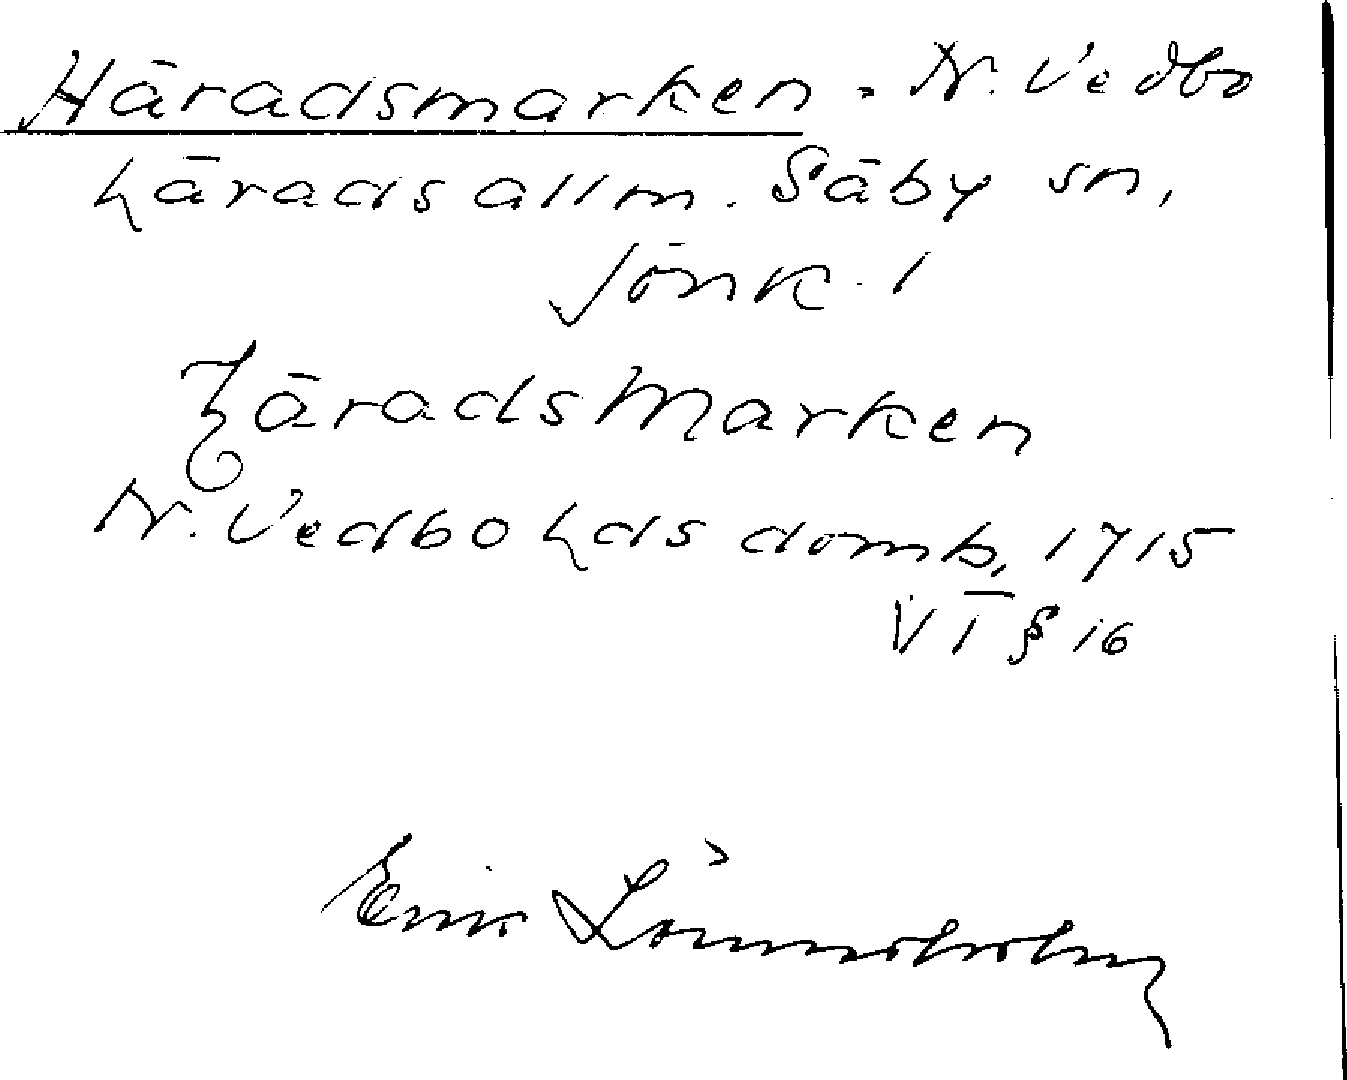 Häradsmarken. N. Vedbo
härads allm. Säby sn,
Jönk. l
HäradsMarken
N. Vedbo hds domb, 1715
VI § 16
Erik Lönnsholm